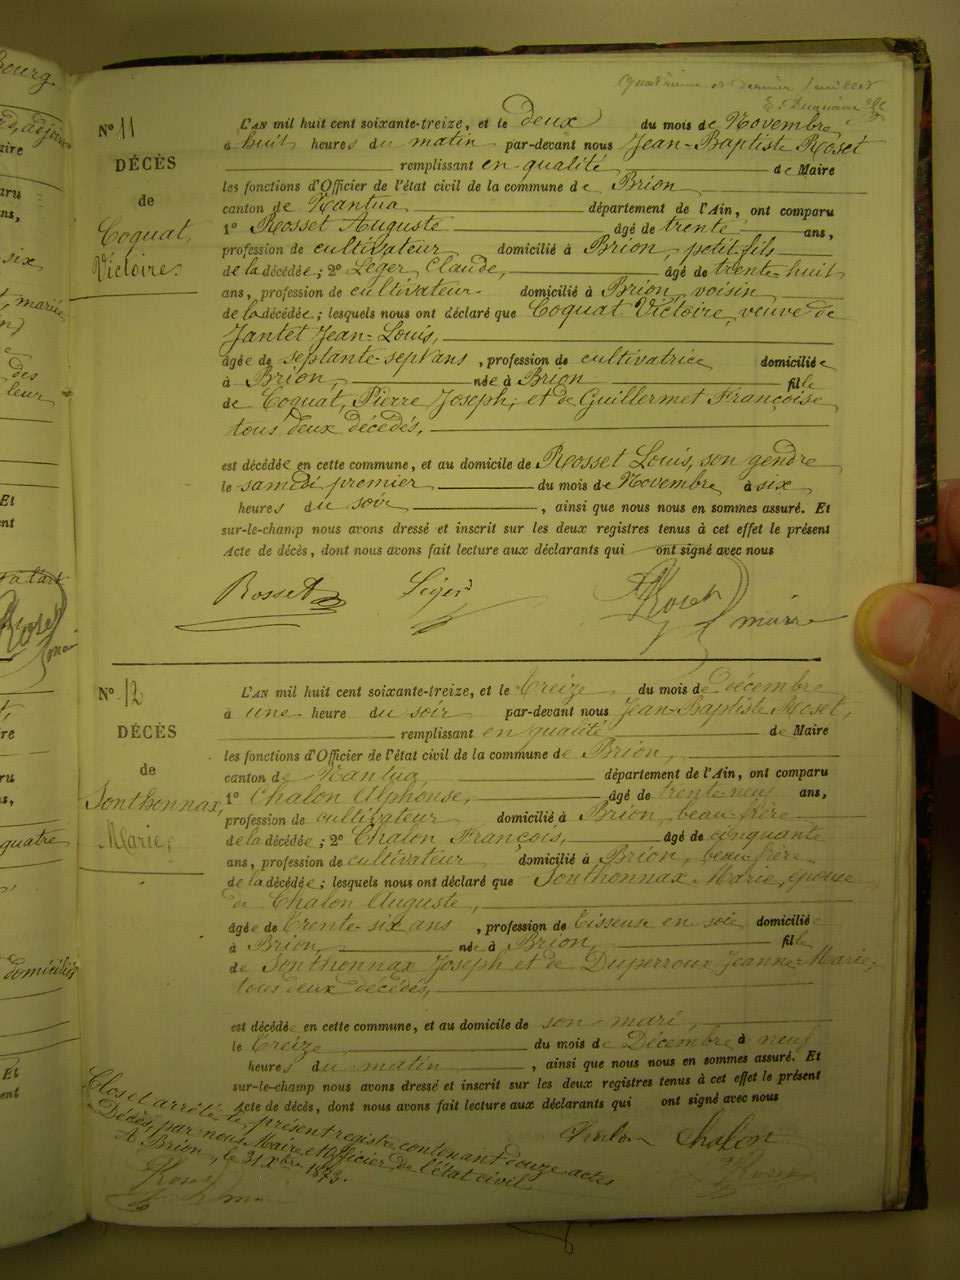 Quatrième et dernier feuillet
N° 11
DÉCÈS
de
Coquat,
Victoire.
L'AN mil huit cent soixante-treize, et le deux du mois de Novembre,
à huit heures du matin par-devant nous Jean-Baptiste Roset
remplissant en qualité de Maire
les fonctions d'Officier de l'état civil de la commune de Brion
canton de Nantua département de l'Ain, ont comparu
1° Rosset Auguste âgé de trente ans,
profession de cultivateur domicilié à Brion, petit-fils
de la décédée; 2° Léger Claude, âgé de trente-huit
ans, profession de cultivateur domicilié à Brion, voisin
de la décédée; lesquels nous ont déclaré que Coquat Victoire, veuve de
Jantet Jean-Louis,
âgée de septante-sept ans, profession de cultivatrice domiciliée
à Brion, née à Brion fille
de Coquat, Pierre Joseph, et de Guillermet Françoise,
tous deux décédés,
est décédée en cette commune, et au domicile de Rosset Louis, son gendre
le samedi premier du mois de Novembre à six
heures du soir, ainsi que nous nous en sommes assuré. Et
sur-le-champ nous avons dressé et inscrit sur les deux registres tenus à cet effet le présent
Acte de décès, dont nous avons fait lecture aux déclarants qui ont signé avec nous
Rosset Léger Roset
maire
N° 12
DÉCÈS
de
Sonthonnax,
Marie.
L'AN mil huit cent soixante-treize, et le treize du mois de décembre
à une heure du soir par-devant nous Jean-Baptiste Roset,
remplissant en qualité de Maire
les fonctions d'Officier de l'état civil de la commune de Brion,
canton de Nantua, département de l'Ain, ont comparu
1° Chalon Alphonse, âgé de trente-neuf ans,
profession de cultivateur domicilié à Brion, beau-frère
de la décédée; 2° Chalon François, âgé de cinquante
ans, profession de cultivateur domicilié à Brion, beau-frère
de la décédée; lesquels nous ont déclaré que Sonthonnax Marie, épouse
de Chalon Auguste,
âgée de trente-six ans, profession de tisseuse en soie domiciliée
à Brion, née à Brion, fille
de Sonthonnax Joseph et de Duperroux Jeanne-Marie,
tous deux décédés,
est décédée en cette commune, et au domicile de son mari,
le treize du mois de Décembre à neuf
heures du matin, ainsi que nous nous en sommes assuré. Et
sur-le-champ nous avons dressé et inscrit sur les deux registres tenus à cet effet le présent
Acte de décès, dont nous avons fait lecture aux déclarants qui ont signé avec nous
Chalon Chalon
Roset
Clos et arrêté le présent registre contenant douze actes
Décès, par nous Maire et Officier de l'état civil
A Brion, le 31 Xbre 1873.
Roset